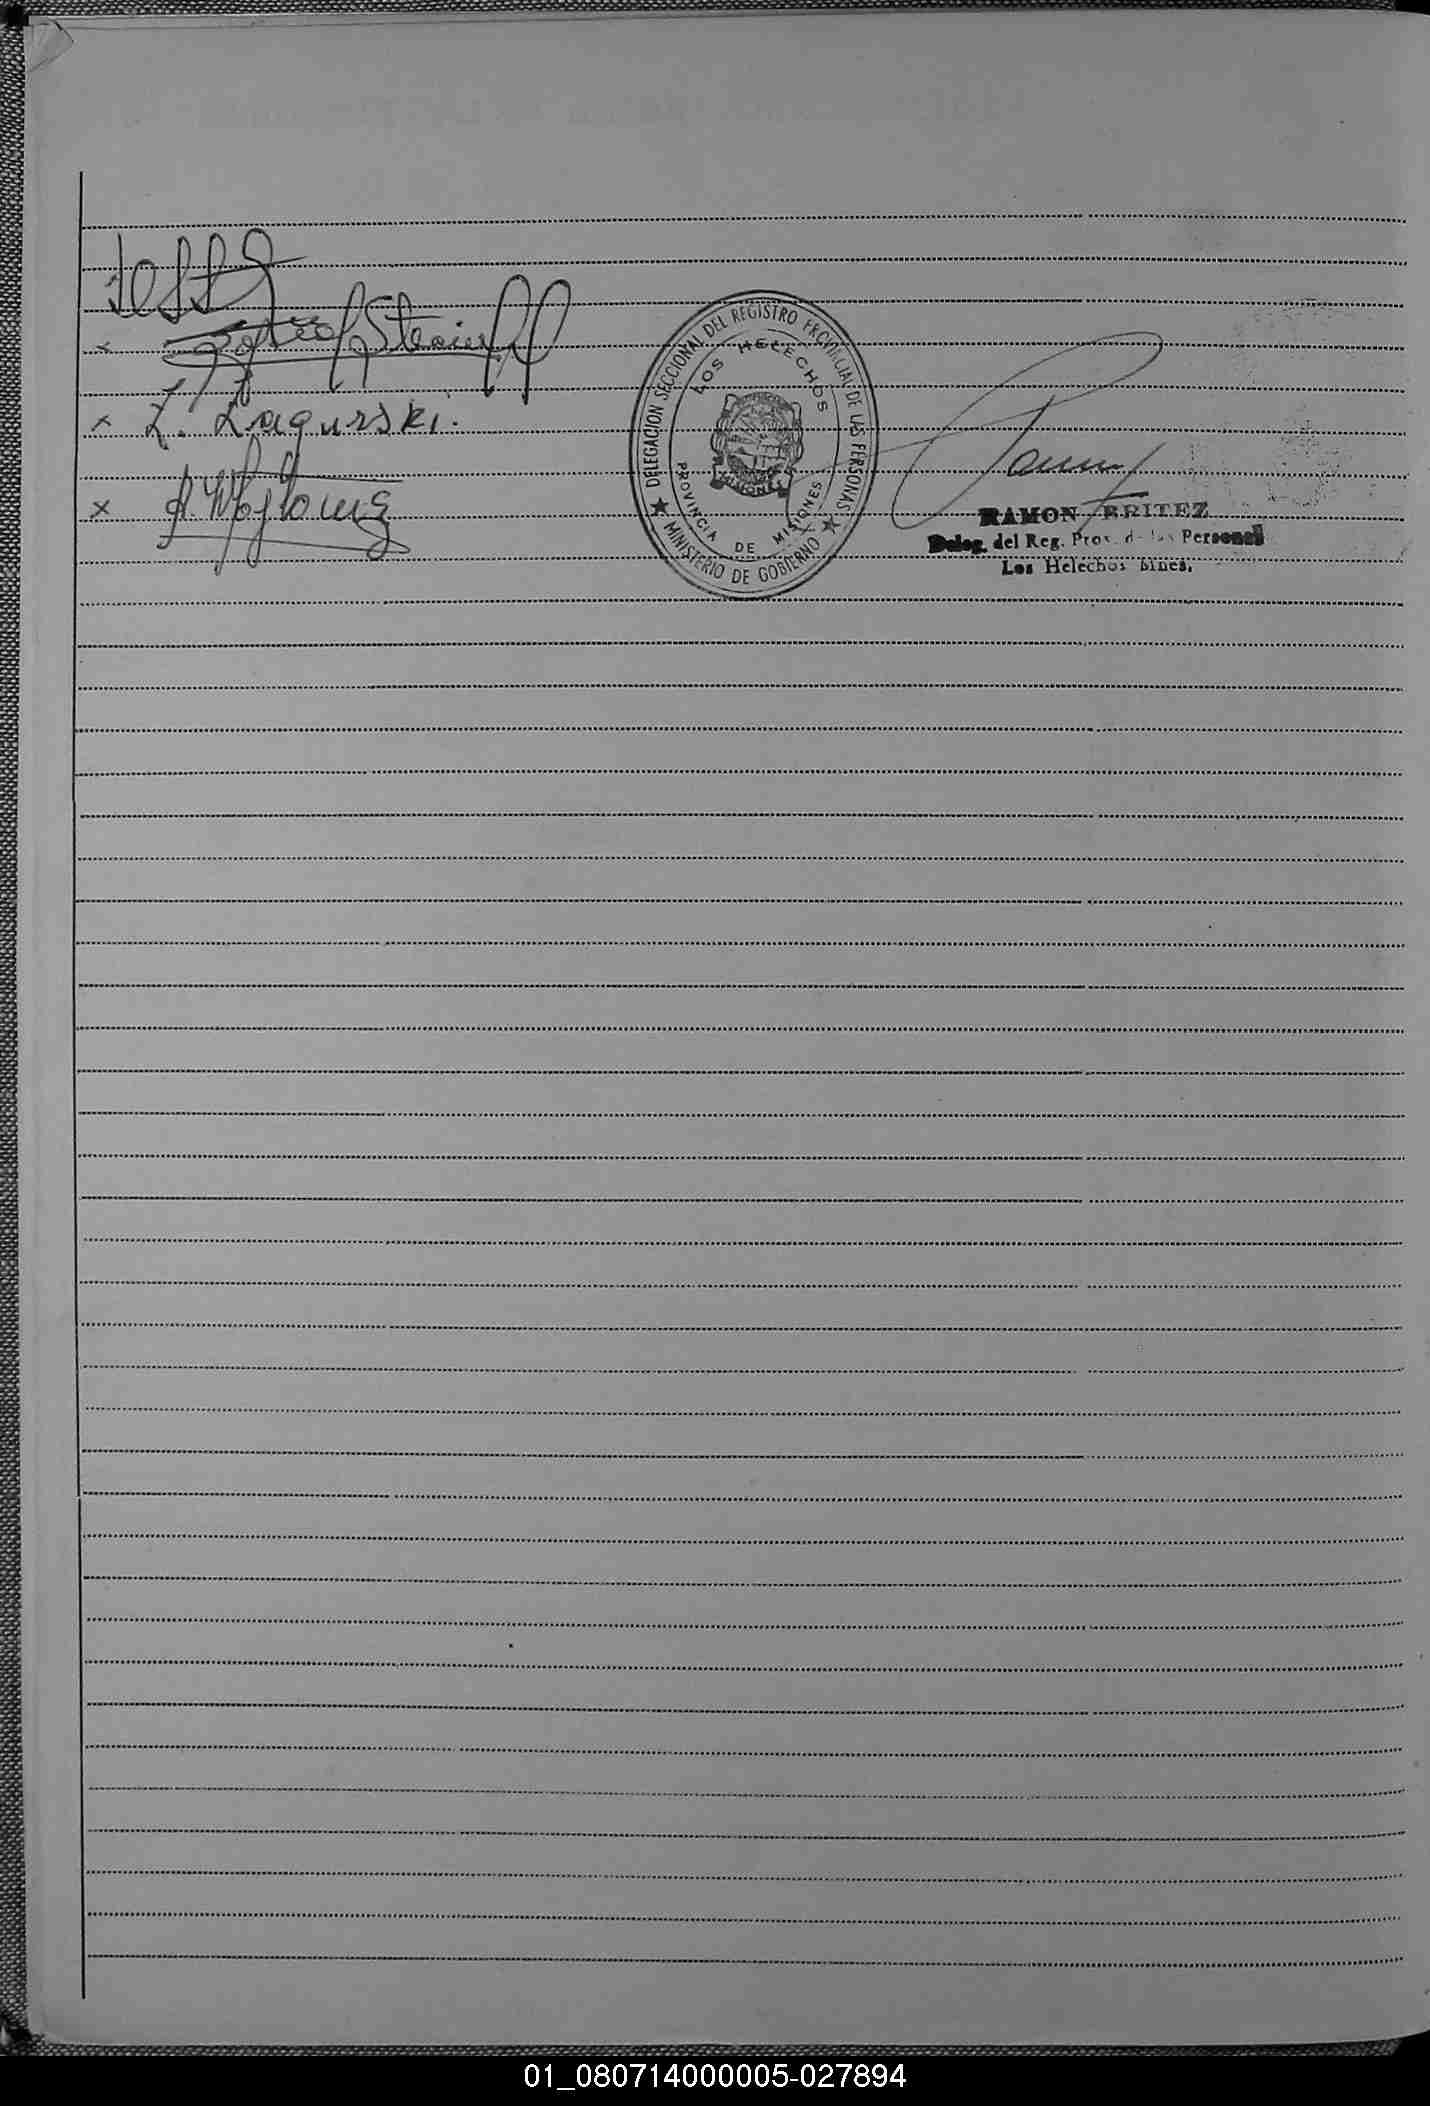 Z. Zagurski.
A. Wojtowiez
DELEGACION SECCIONAL DEL REGISTRO PROVINCIAL DE LAS PERSONAS
LOS HELECHOS
MISIONES
PROVINCIA DE MISIONES
★ MINISTERIO DE GOBIERNO ★
RAMON BRITEZ
Deleg. del Reg. Prov. de las Personas
Los Helechos Mnes.
01_080714000005-027894